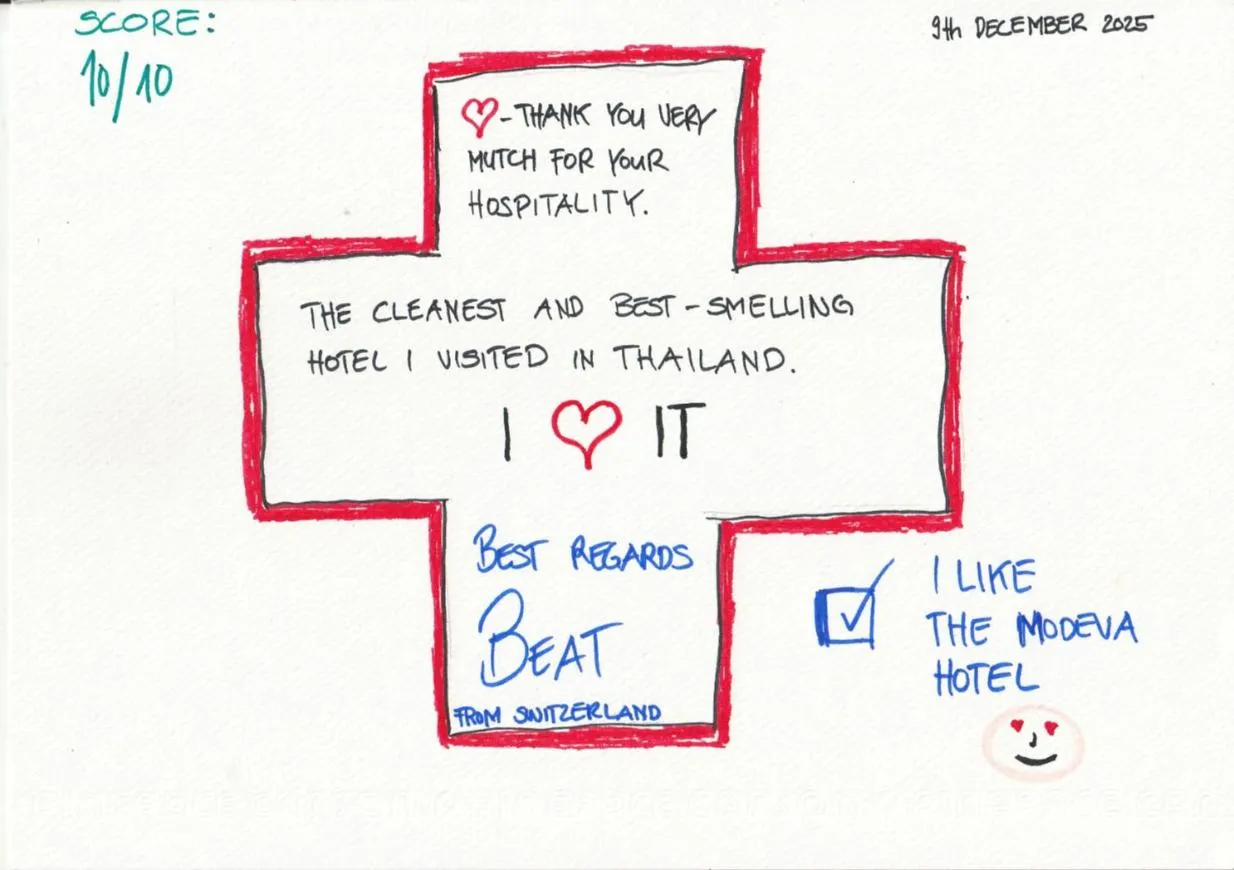 SCORE:
10/10
9th DECEMBER 2025
♥-THANK YOU VERY
MUTCH FOR YOUR
HOSPITALITY.
THE CLEANEST AND BEST-SMELLING
HOTEL I VISITED IN THAILAND.
I ♥ IT
BEST REGARDS
BEAT
FROM SWITZERLAND
I LIKE
THE MODEVA
HOTEL